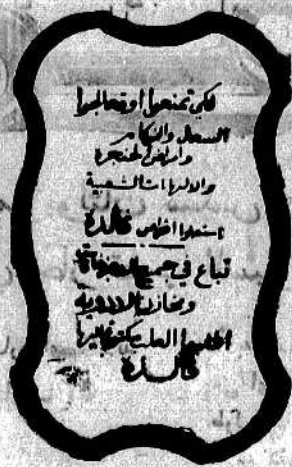 لكي تمنعوا او تعالجوا
السعال والزكام
وامراض الحنجرة
والالتهابات الشعبية
استعملوا اقراص فالدا
تباع في جميع الاجزاخانات
ومخازن الادوية
اطلبوا العلب مكتوب عليها
فالدا